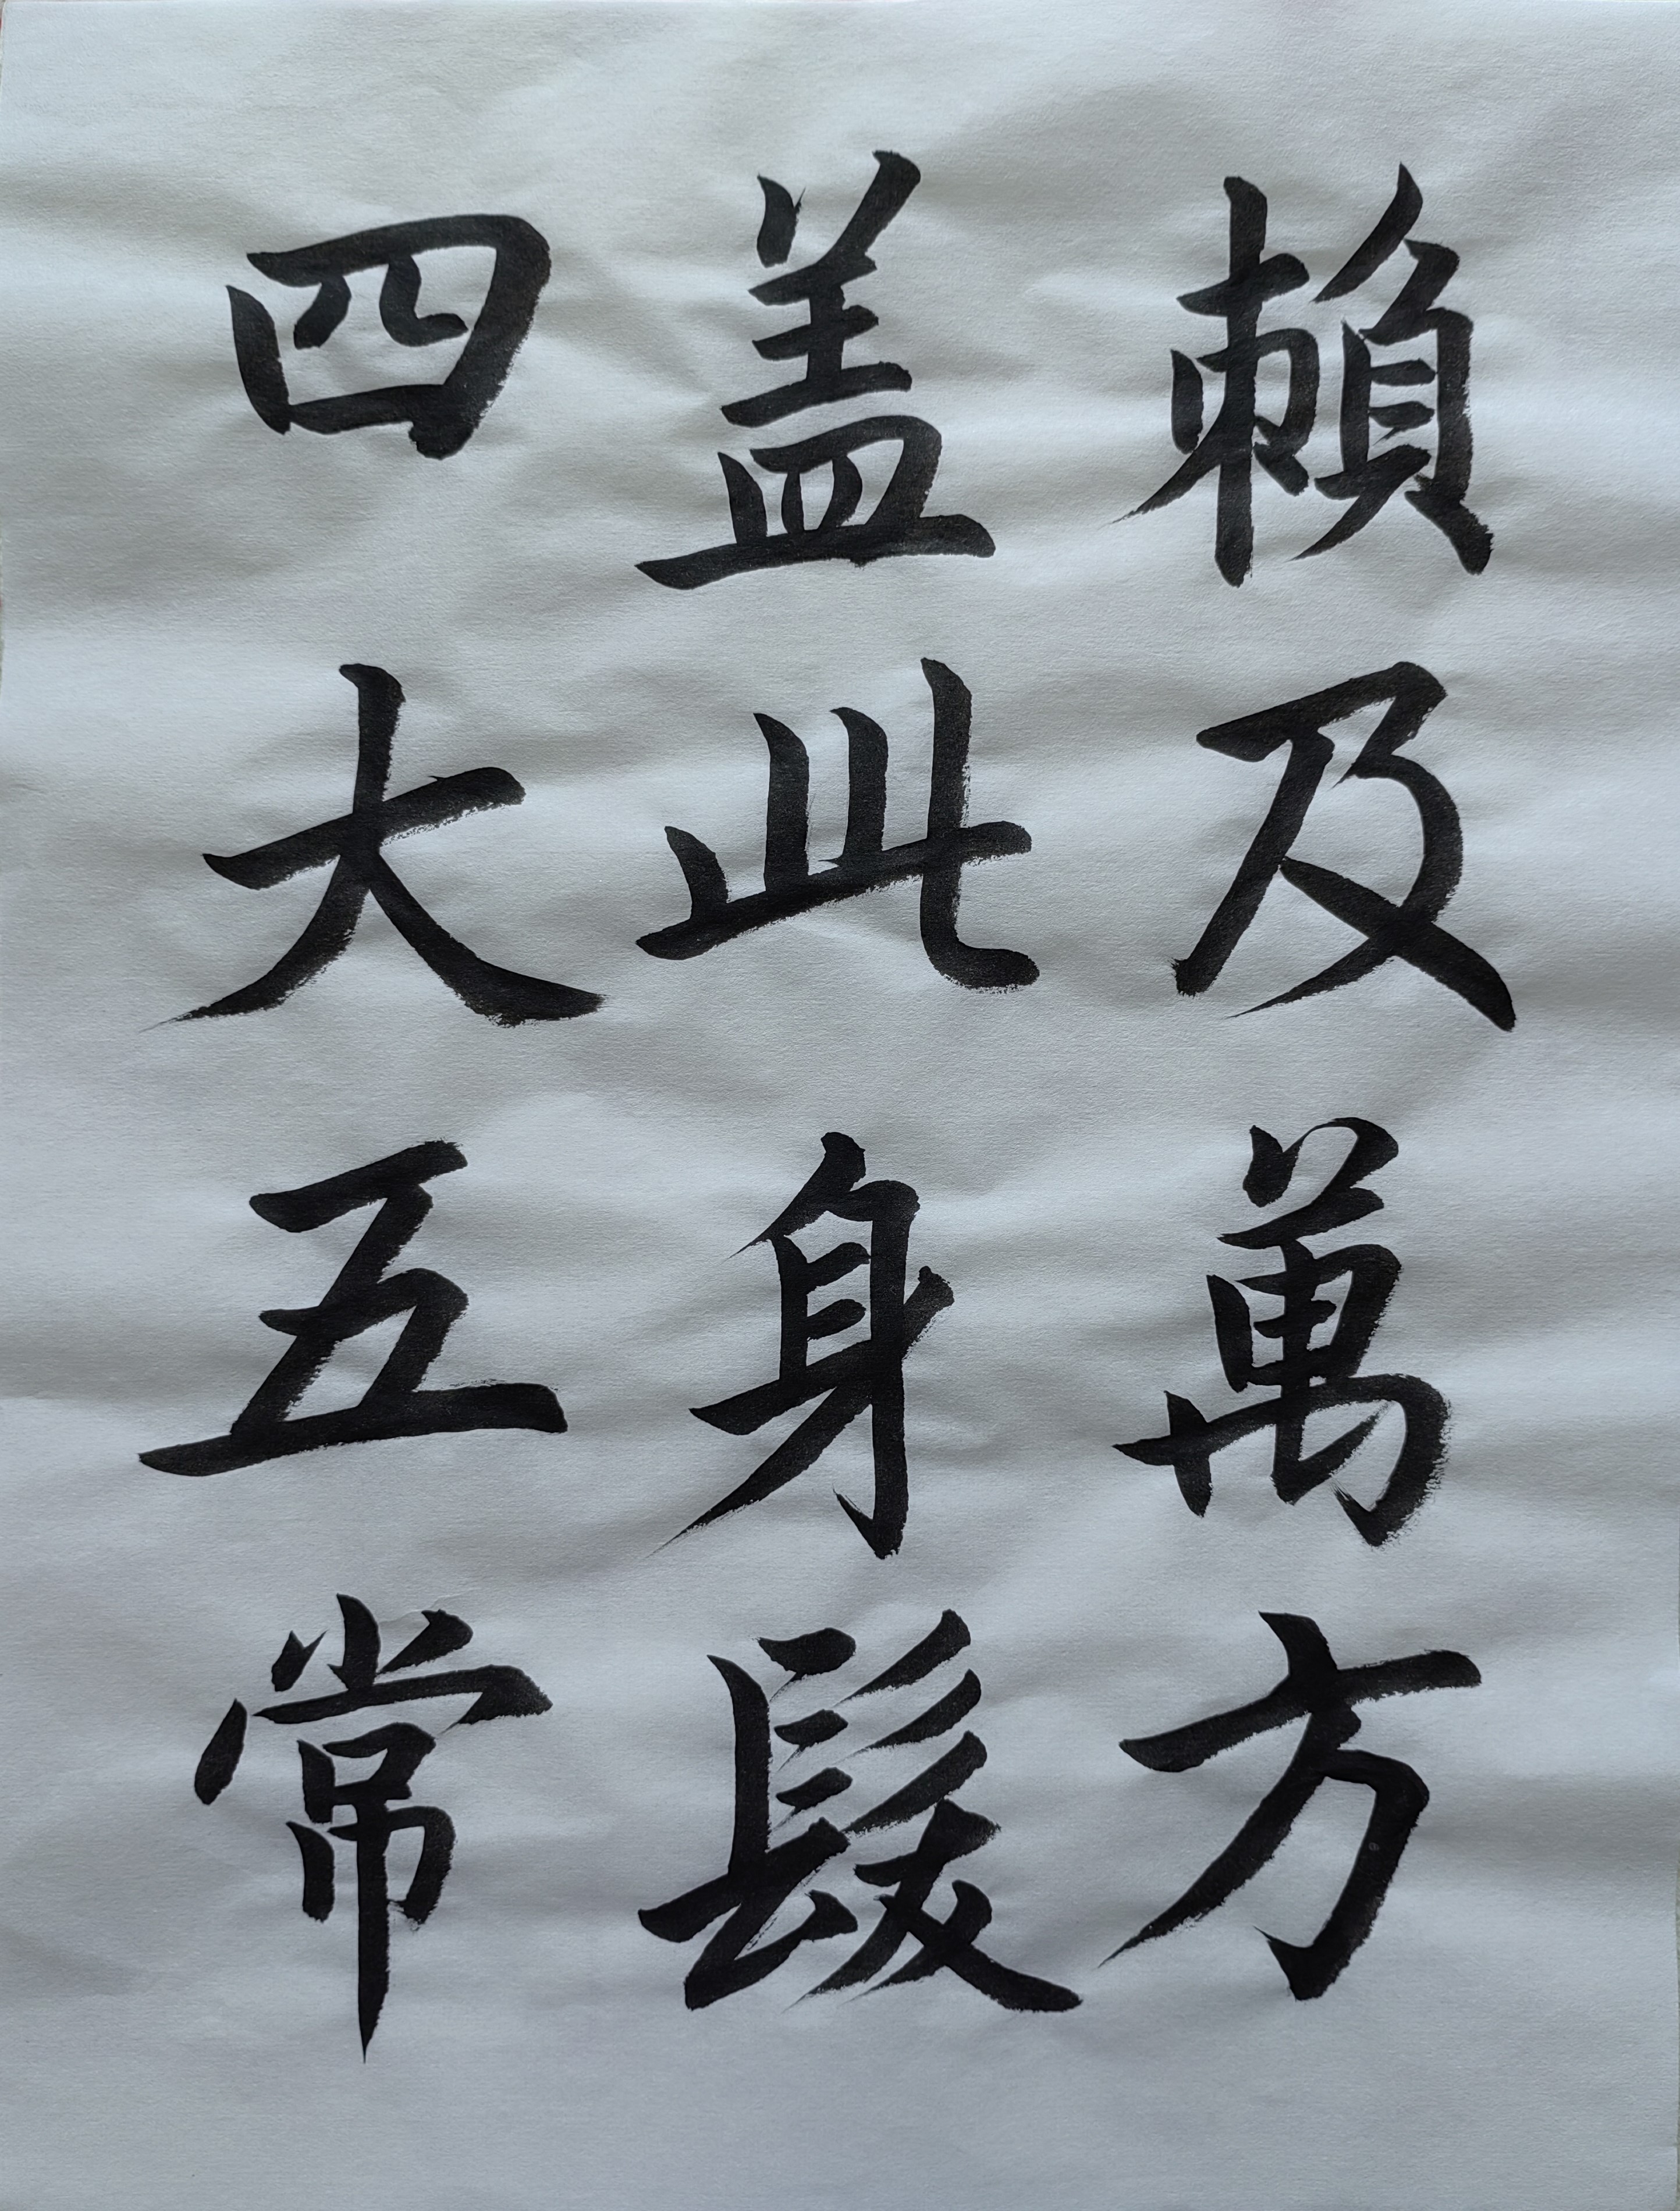 賴及萬方
盖此身髮
四大五常